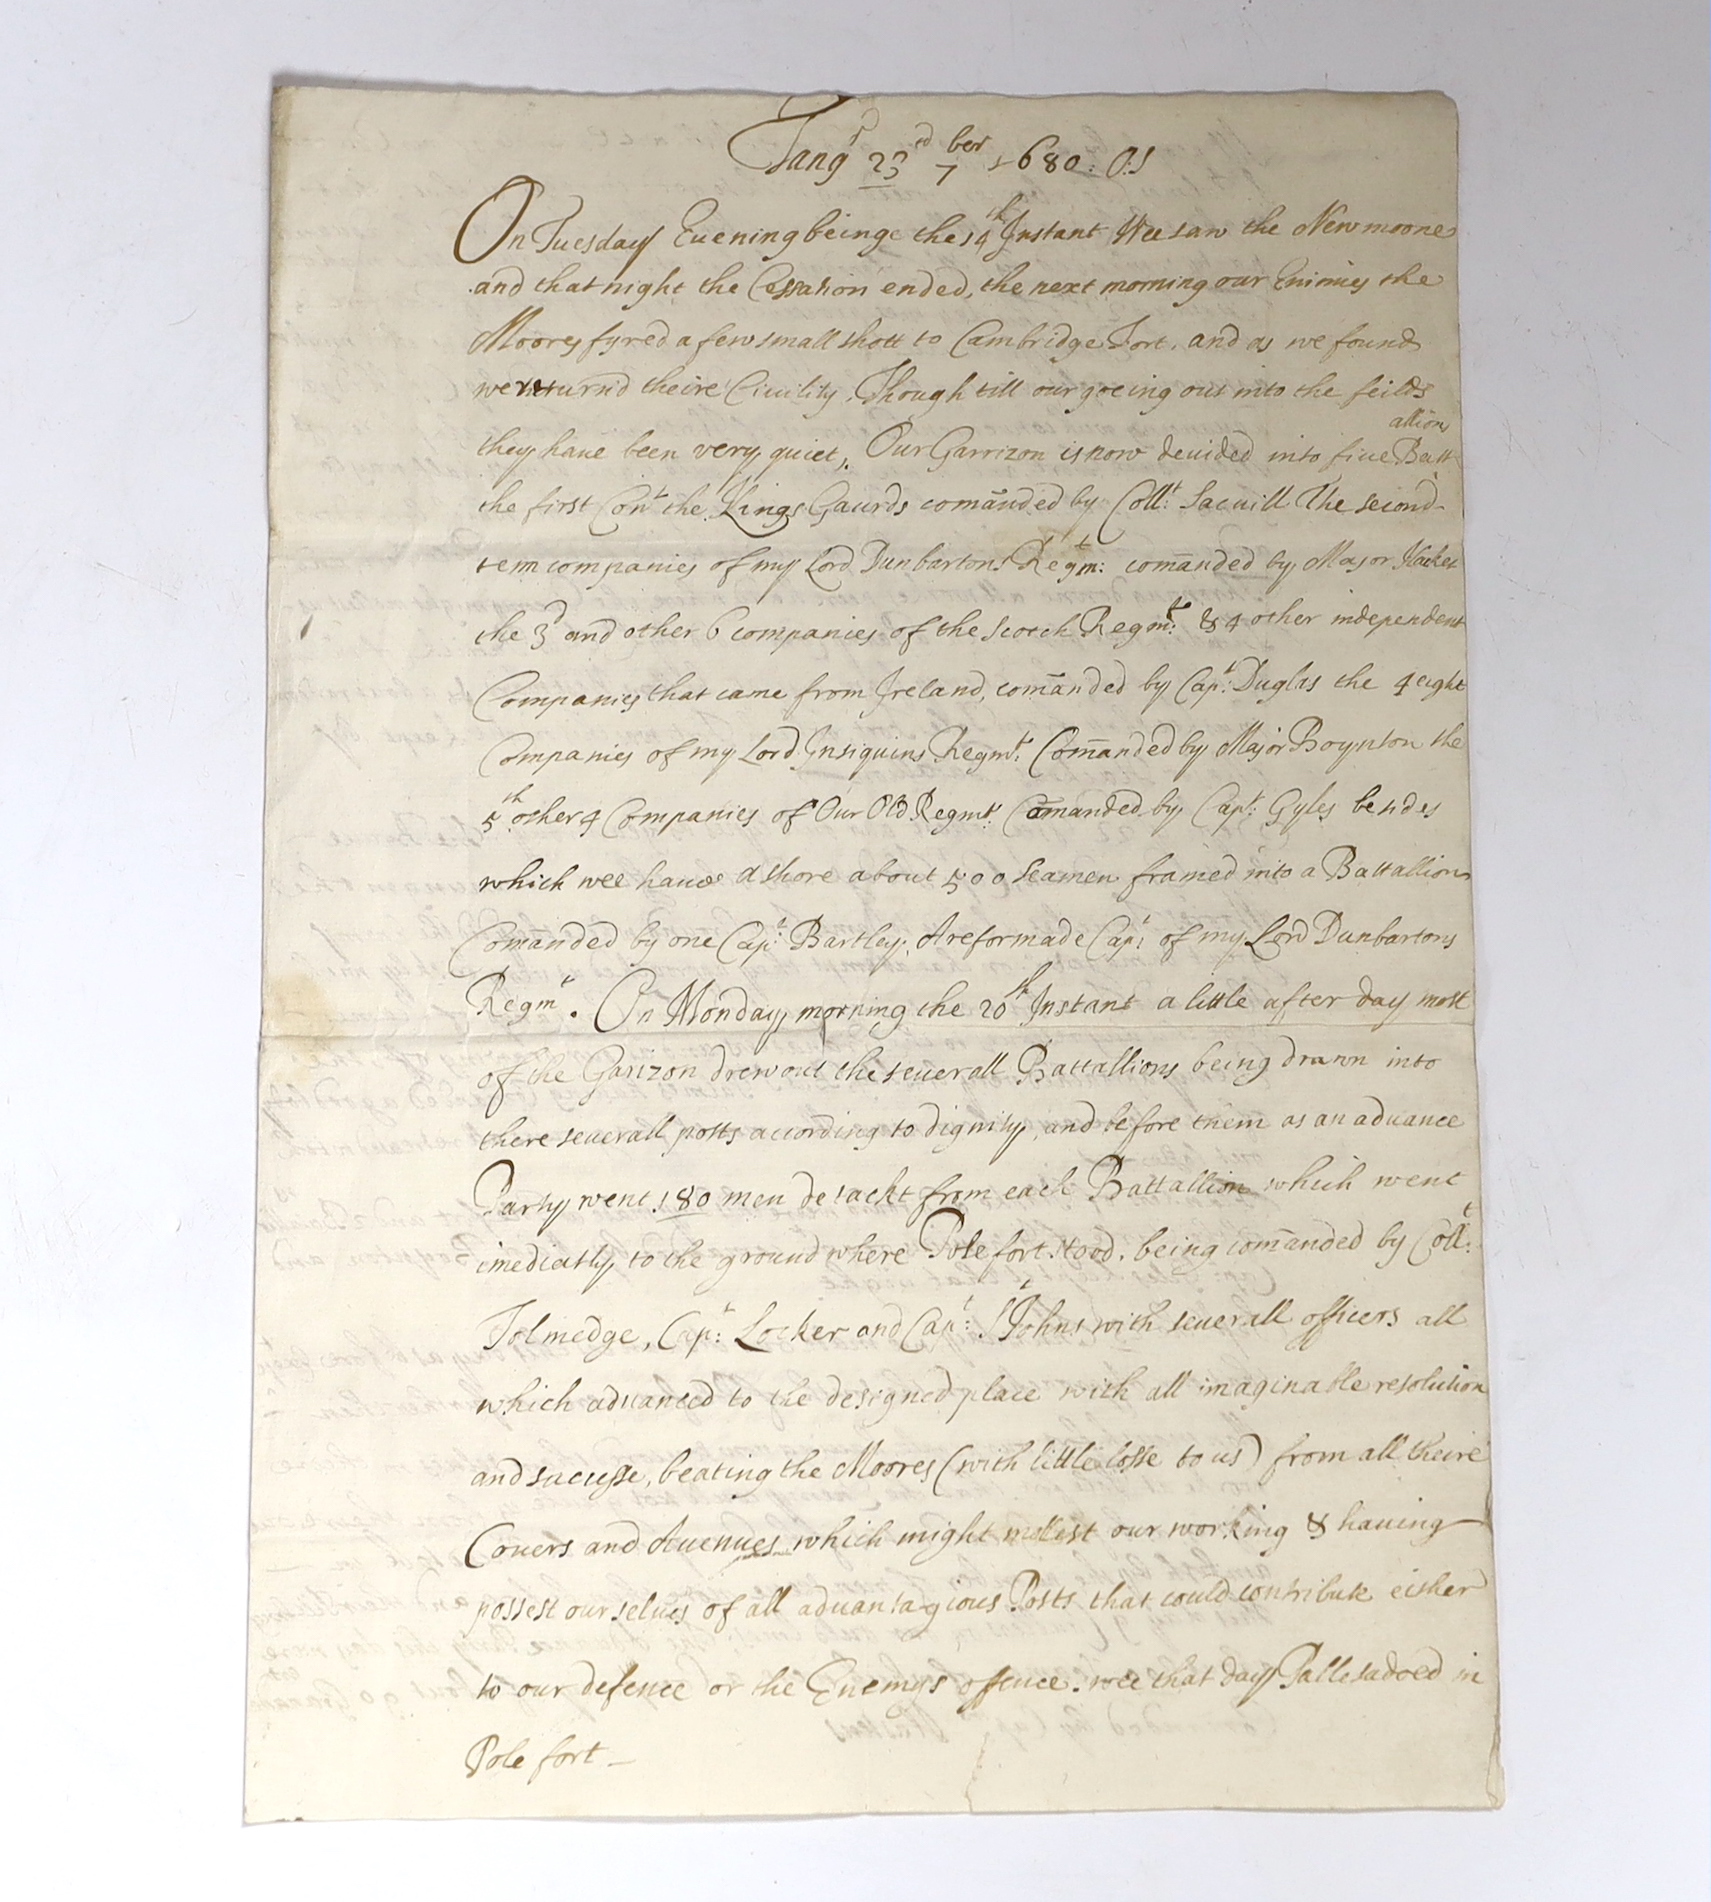 Tangr 23ed 7ber 1680: O:S
On Tuesday Euening beinge the 14th Instant Wee saw the New moone
and that night the Cessation ended, the next morning our Enimies the
Moores fyred a few small shott to Cambridge Fort, and as we found
we returnd theire Ciuility, Though till our goeing out into the feilds
they haue been very quiet, Our Garrizon is now deuided into fiue Battallion
the first Cont the Kings Gaurds comanded by Collt: Sacuill The second
tenn companies of my Lord Dunbartons Regmt: comanded by Major Hacket
the 3d and other 6 companies of the Scotch Regmt: & 4 other independent
Companies that came from Ireland, comanded by Capt: Duglas the 4 eight
Companies of my Lord Insiquins Regmt: Comanded by Major Boynton the
5th other 4 Companies of Our Old Regmt: Comanded by Capt: Gyles besides
which wee haue a shore about 500 Seamen framed into a Battallion
Comanded by one Capt: Bartley, A reformade Capt: of my Lord Dunbartons
Regmt. On Monday morning the 20th Instant a little after day most
of the Garizon drew out the seuerall Battallions being drawn into
there seuerall posts according to dignity, and before them as an aduance
Party went 180 men detacht from each Battallion which went
imediatly to the ground where Pole fort stood, being comanded by Collt:
Tolmedge, Capt: Locker and Capt: St Johns with seuerall officers all
which aduanced to the designed place with all imaginable resolution
and sucesse, beating the Moores (with little losse to us) from all theire
Couers and Auenues which might mollest our working & hauing
possest our selues of all aduantagious Posts that could contribute either
to our defence or the Enemys offence. wee that day Pallesadoed in
Pole fort